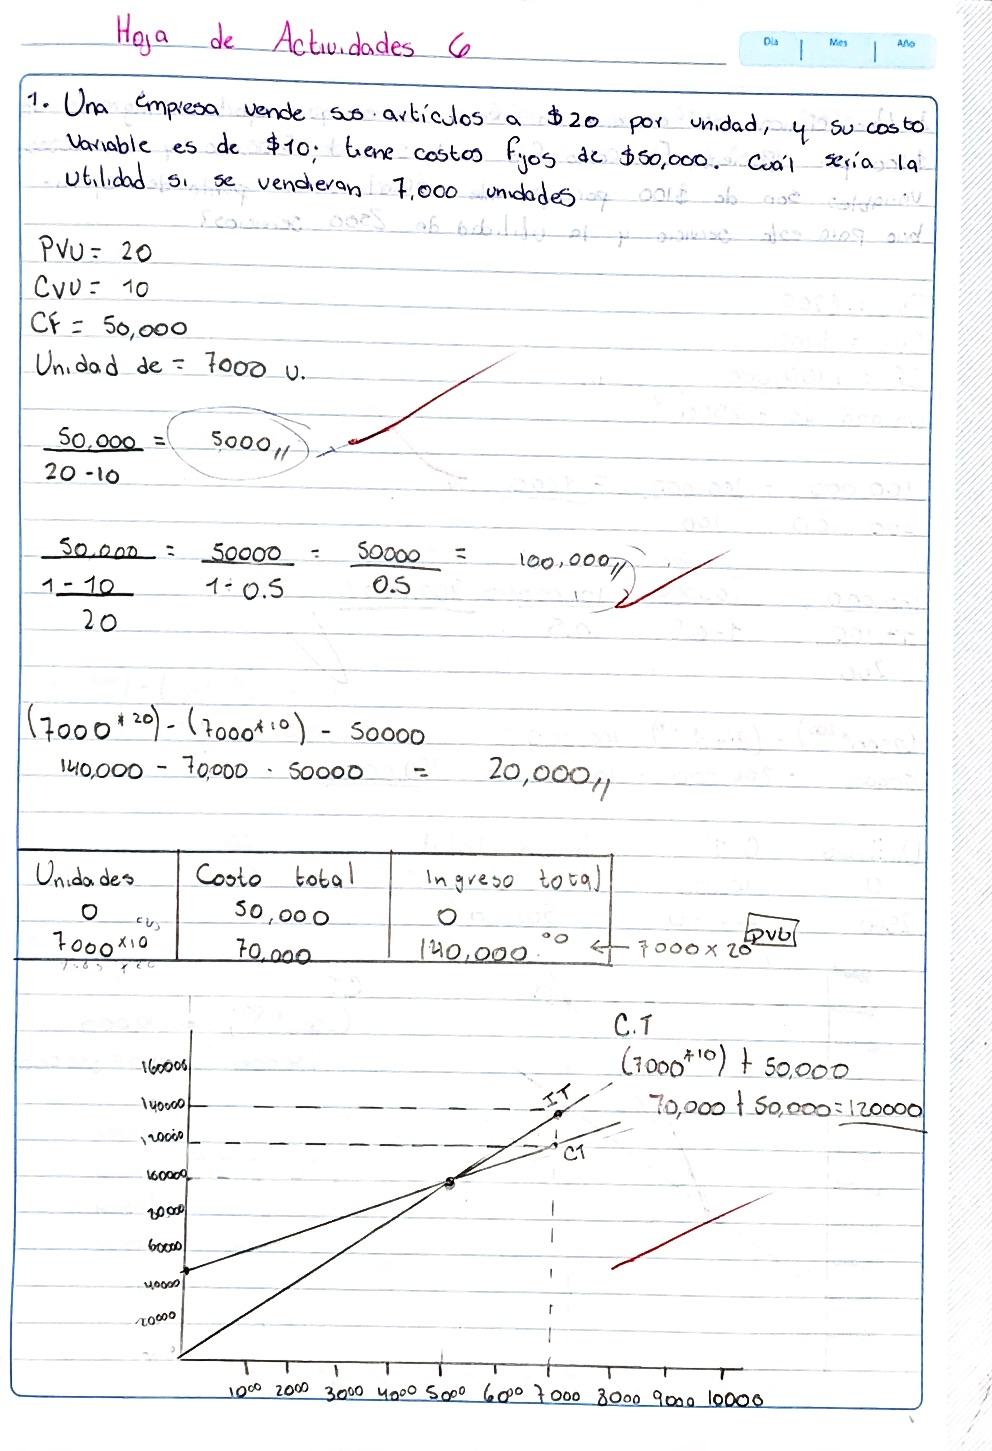 Hoja de Actividades 6
Dia Mes Año
1. Una empresa vende sus artículos a $20 por unidad, y su costo
Variable es de $10; tiene costos fijos de $50,000. Cuál sería la
Utilidad si se vendieran 7,000 unidades
PVU = 20
CVU = 10
CF = 50,000
Unidad de = 7000 U.
50,000 = 5000
20 - 10
50,000 = 50000 = 50000 = 100,000
1 - 10 1 - 0.5 0.5
20
(7000*20) - (7000*10) - 50000
140,000 - 70,000 - 50000 = 20,000
Unidades Costo total Ingreso total
0 50,000 0
7000 x10 70,000 140,000.00 ← 7000 x 20 PVU
C.T
(7000*10) + 50,000
70,000 + 50,000 = 120000
160000
140000
IT
120000
CT
100000
80000
60000
40000
20000
1000 2000 3000 4000 5000 6000 7000 8000 9000 10000